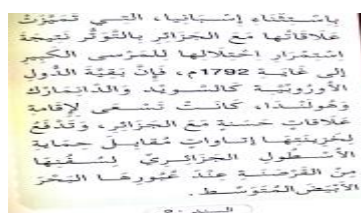 بِاسْتِثْنَاءِ إِسْبَانِيَا، الَّتِي تَمَيَّزَتْ
عَلَاقَاتُهَا مَعَ الجَزَائِرِ بِالتَّوَتُّرِ نَتِيجَةَ
اسْتِمْرَارِ احْتِلَالِهَا لِلْمَرْسَى الكَبِيرِ
إِلَى غَايَةِ 1792م، فَإِنَّ بَقِيَّةَ الدُّوَلِ
الأُورُوبِّيَّةِ كَالسُّوَيْدِ وَالدَّانِمَارْك
وَهُولَنْدَا، كَانَتْ تَسْعَى لِإِقَامَةِ
عَلَاقَاتٍ حَسَنَةٍ مَعَ الجَزَائِرِ، وَتَدْفَعُ
لِخَزِينَتِهَا إِتَاوَاتٍ مُقَابِلَ حِمَايَةِ
الأُسْطُولِ الجَزَائِرِيِّ لِسُفُنِهَا
مِنَ القَرْصَنَةِ عِنْدَ عُبُورِهَا البَحْرَ
الأَبْيَضَ المُتَوَسِّطَ.